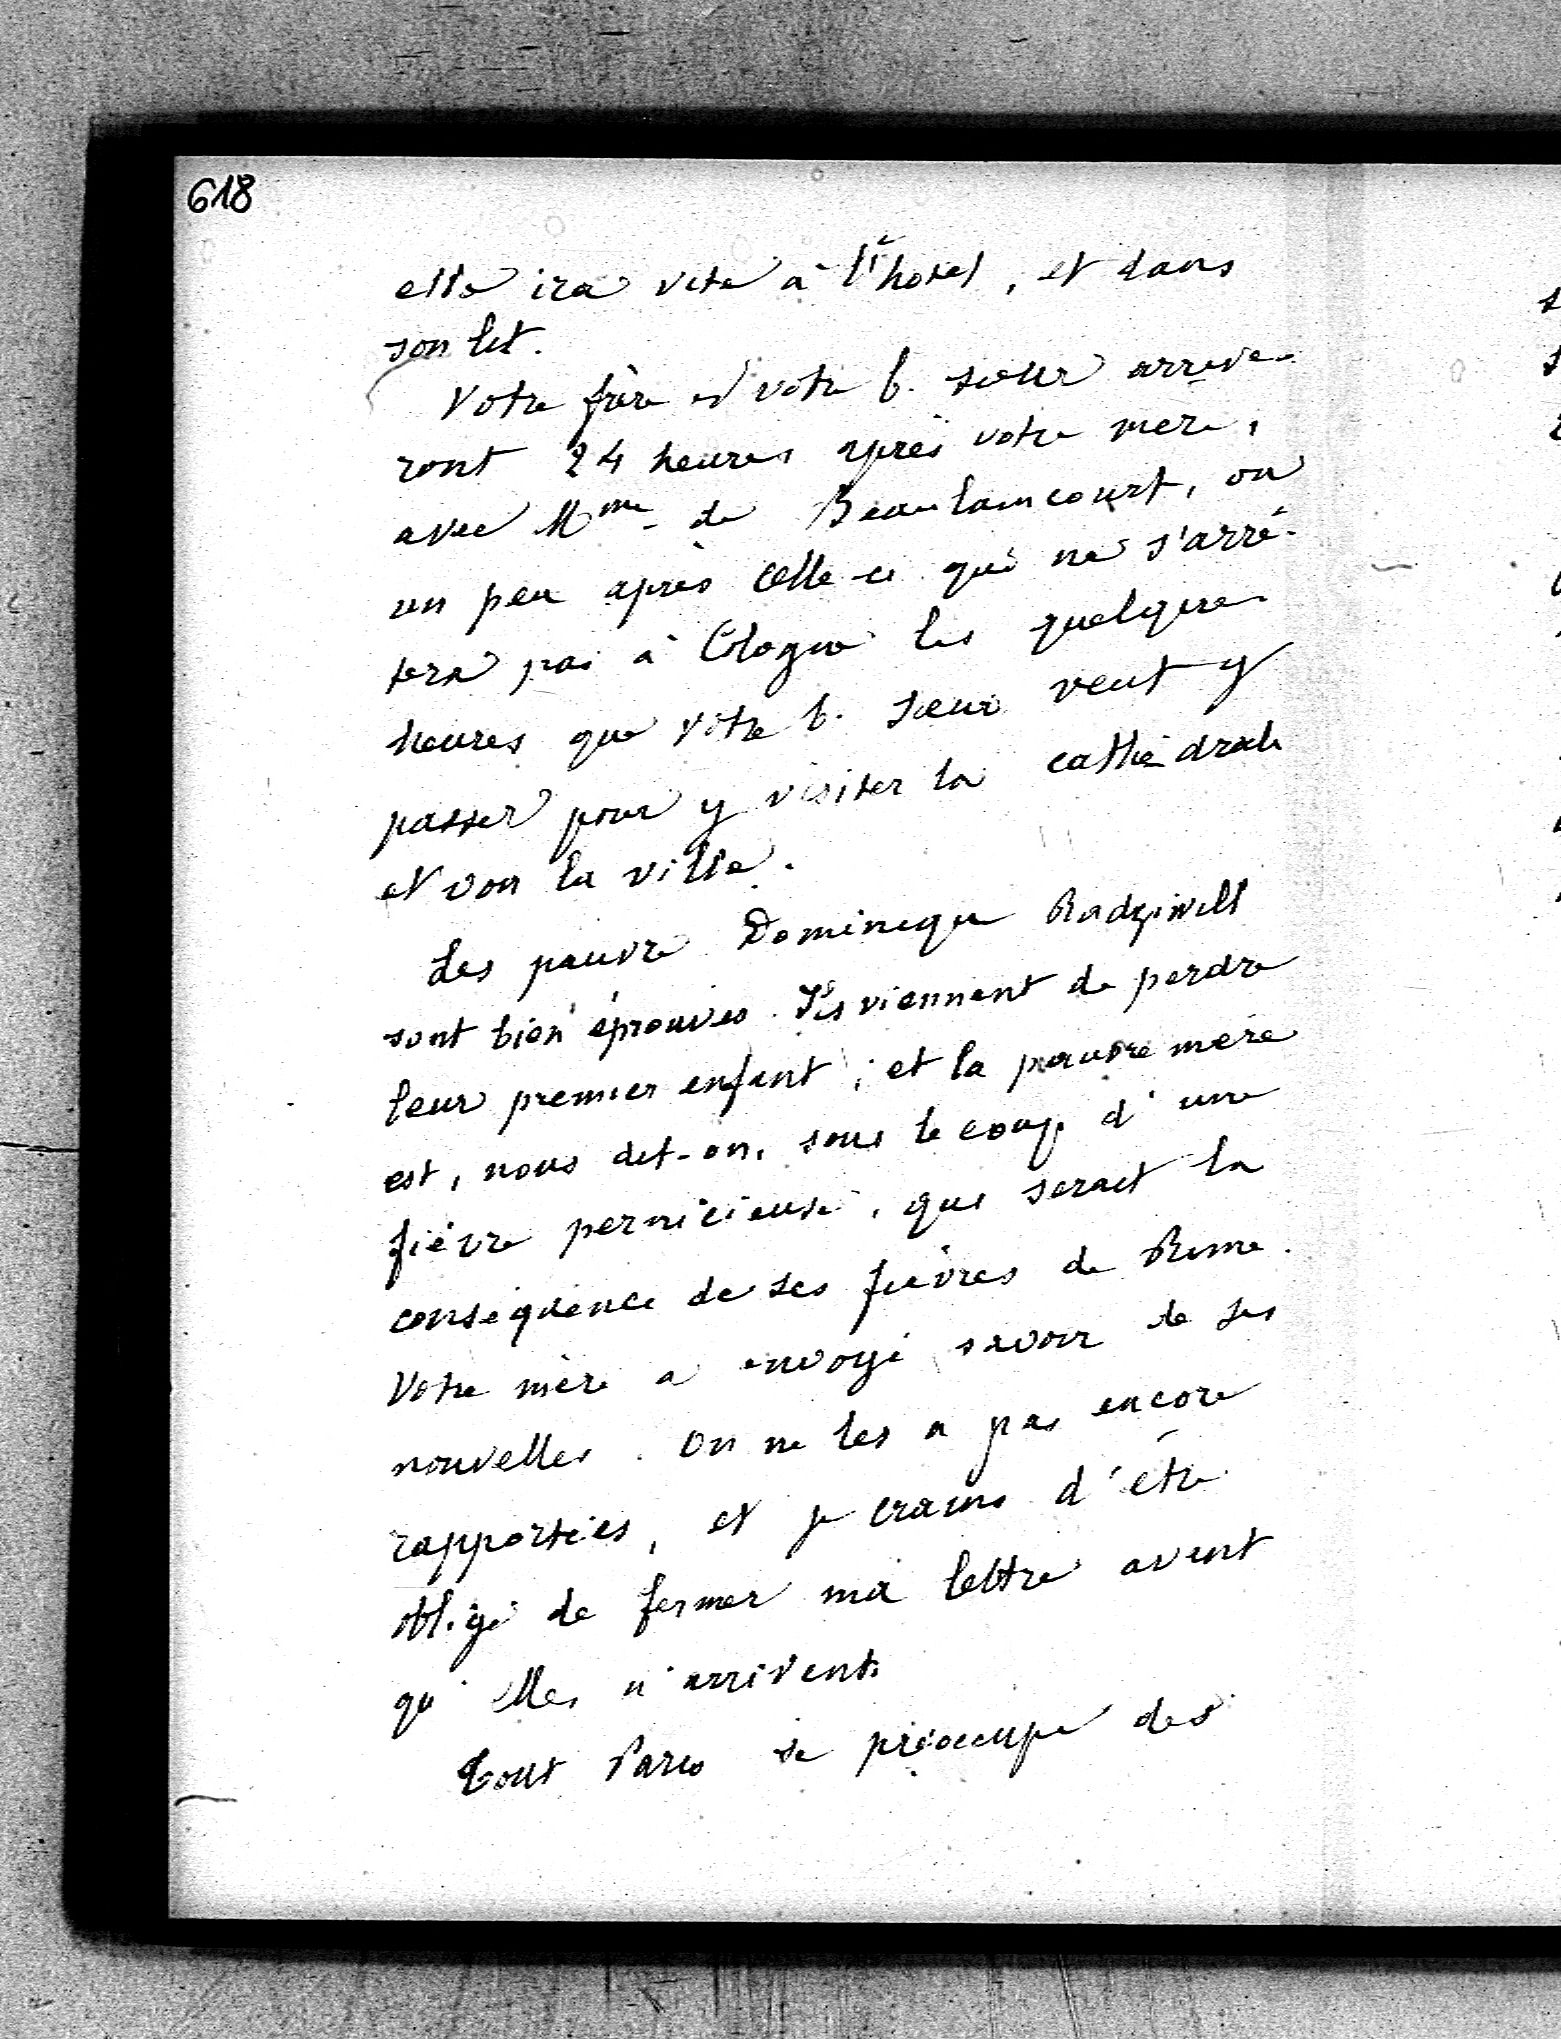 618
elle ira vite à l'hotel, et dans
son lit.
Votre frère et votre b. sœur arrive-
ront 24 heures après votre mère,
avec Mme de Beaulaincourt, ou
un peu après celle-ci qui ne s'arrê-
tera pas à Cologne les quelques
heures que votre b. sœur veut y
passer pour y visiter la cathédrale
et voir la ville.
Les pauvre Dominique Radziwill
sont bien éprouvés. Ils viennent de perdre
leur premier enfant ; et la pauvre mère
est, nous dit-on, sous le coup d'une
fièvre pernicieuse, qui serait la
conséquence de ses fièvres de Rome.
Votre mère a envoyé savoir de ses
nouvelles. On ne les a pas encore
rapportées, et je crains d'être
obligé de fermer ma lettre avant
qu'elles n'arrivent.
Tout Paris se préoccupe des